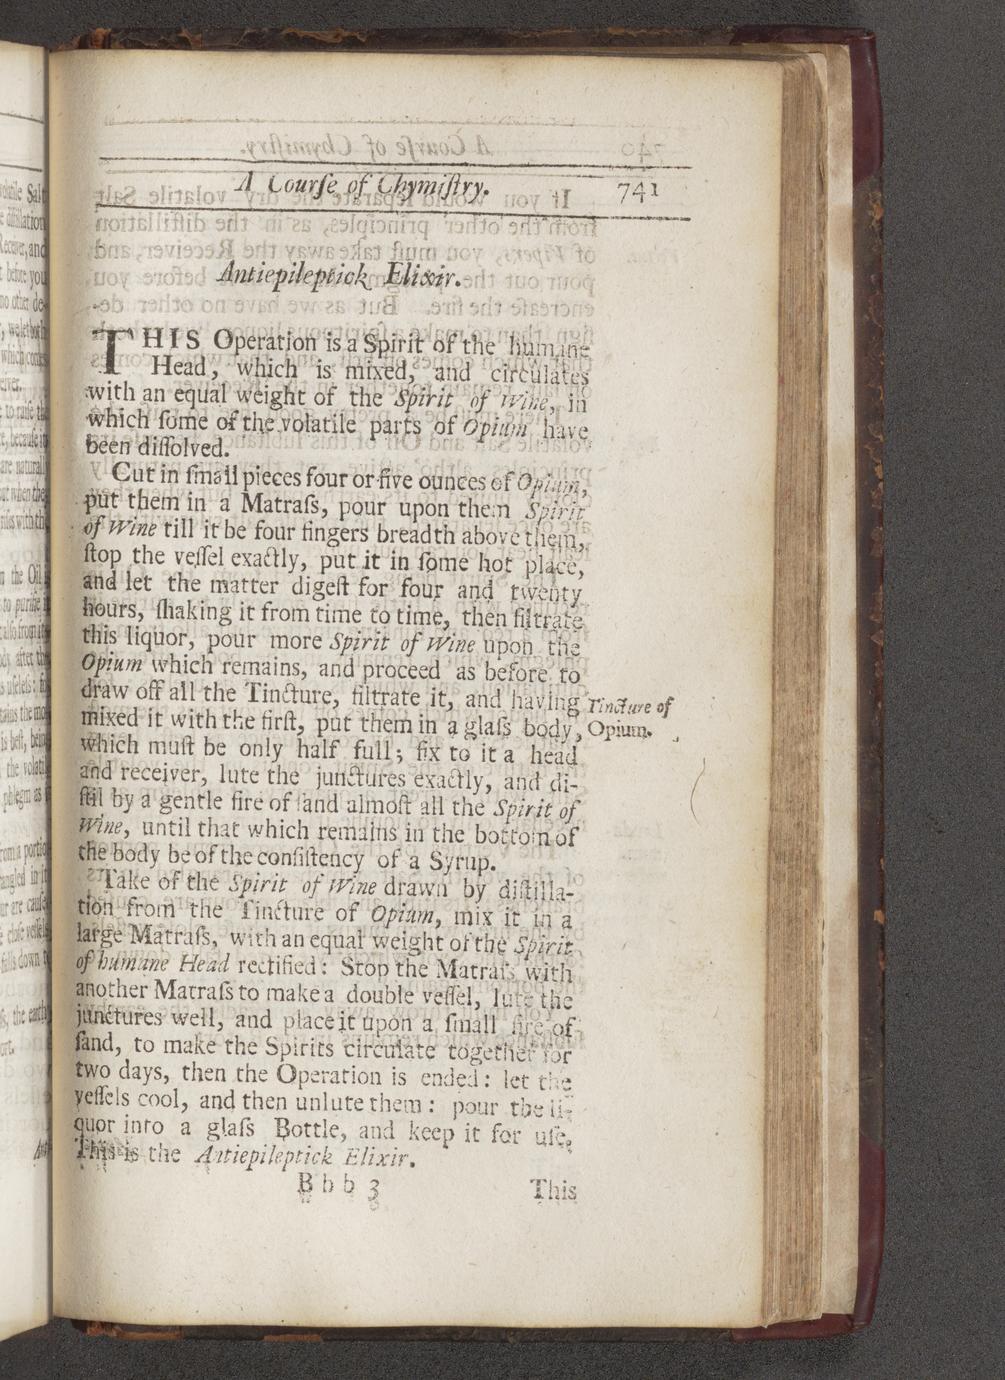 A Courſe of Chymiſtry. 741
Antiepileptick Elixir.
THIS Operation is a Spirit of the humane
Head, which is mixed, and circulates
with an equal weight of the Spirit of Wine, in
which ſome of the volatile parts of Opium have
been diſſolved.
Cut in ſmall pieces four or five ounces of Opium,
put them in a Matraſs, pour upon them Spirit
of Wine till it be four fingers breadth above them,
ſtop the veſſel exactly, put it in ſome hot place,
and let the matter digeſt for four and twenty
hours, ſhaking it from time to time, then filtrate
this liquor, pour more Spirit of Wine upon the
Opium which remains, and proceed as before to
draw off all the Tincture, filtrate it, and having
Tincture of
mixed it with the firſt, put them in a glaſs body,
Opium.
which muſt be only half full; fix to it a head
and receiver, lute the junctures exactly, and di-
ſtil by a gentle fire of ſand almoſt all the Spirit of
Wine, until that which remains in the bottom of
the body be of the conſiſtency of a Syrup.
Take of the Spirit of Wine drawn by diſtilla-
tion from the Tincture of Opium, mix it in a
large Matraſs, with an equal weight of the Spirit
of humane Head rectified: Stop the Matraſs with
another Matraſs to make a double veſſel, lute the
junctures well, and place it upon a ſmall fire of
ſand, to make the Spirits circulate together for
two days, then the Operation is ended: let the
veſſels cool, and then unlute them: pour the li-
quor into a glaſs Bottle, and keep it for uſe.
This is the Antiepileptick Elixir.
Bbb 3 This